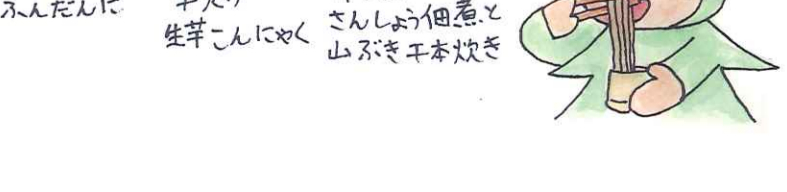 ふんだんに
生芋こんにゃく
さんしょう佃煮と
山ぶき千本炊き